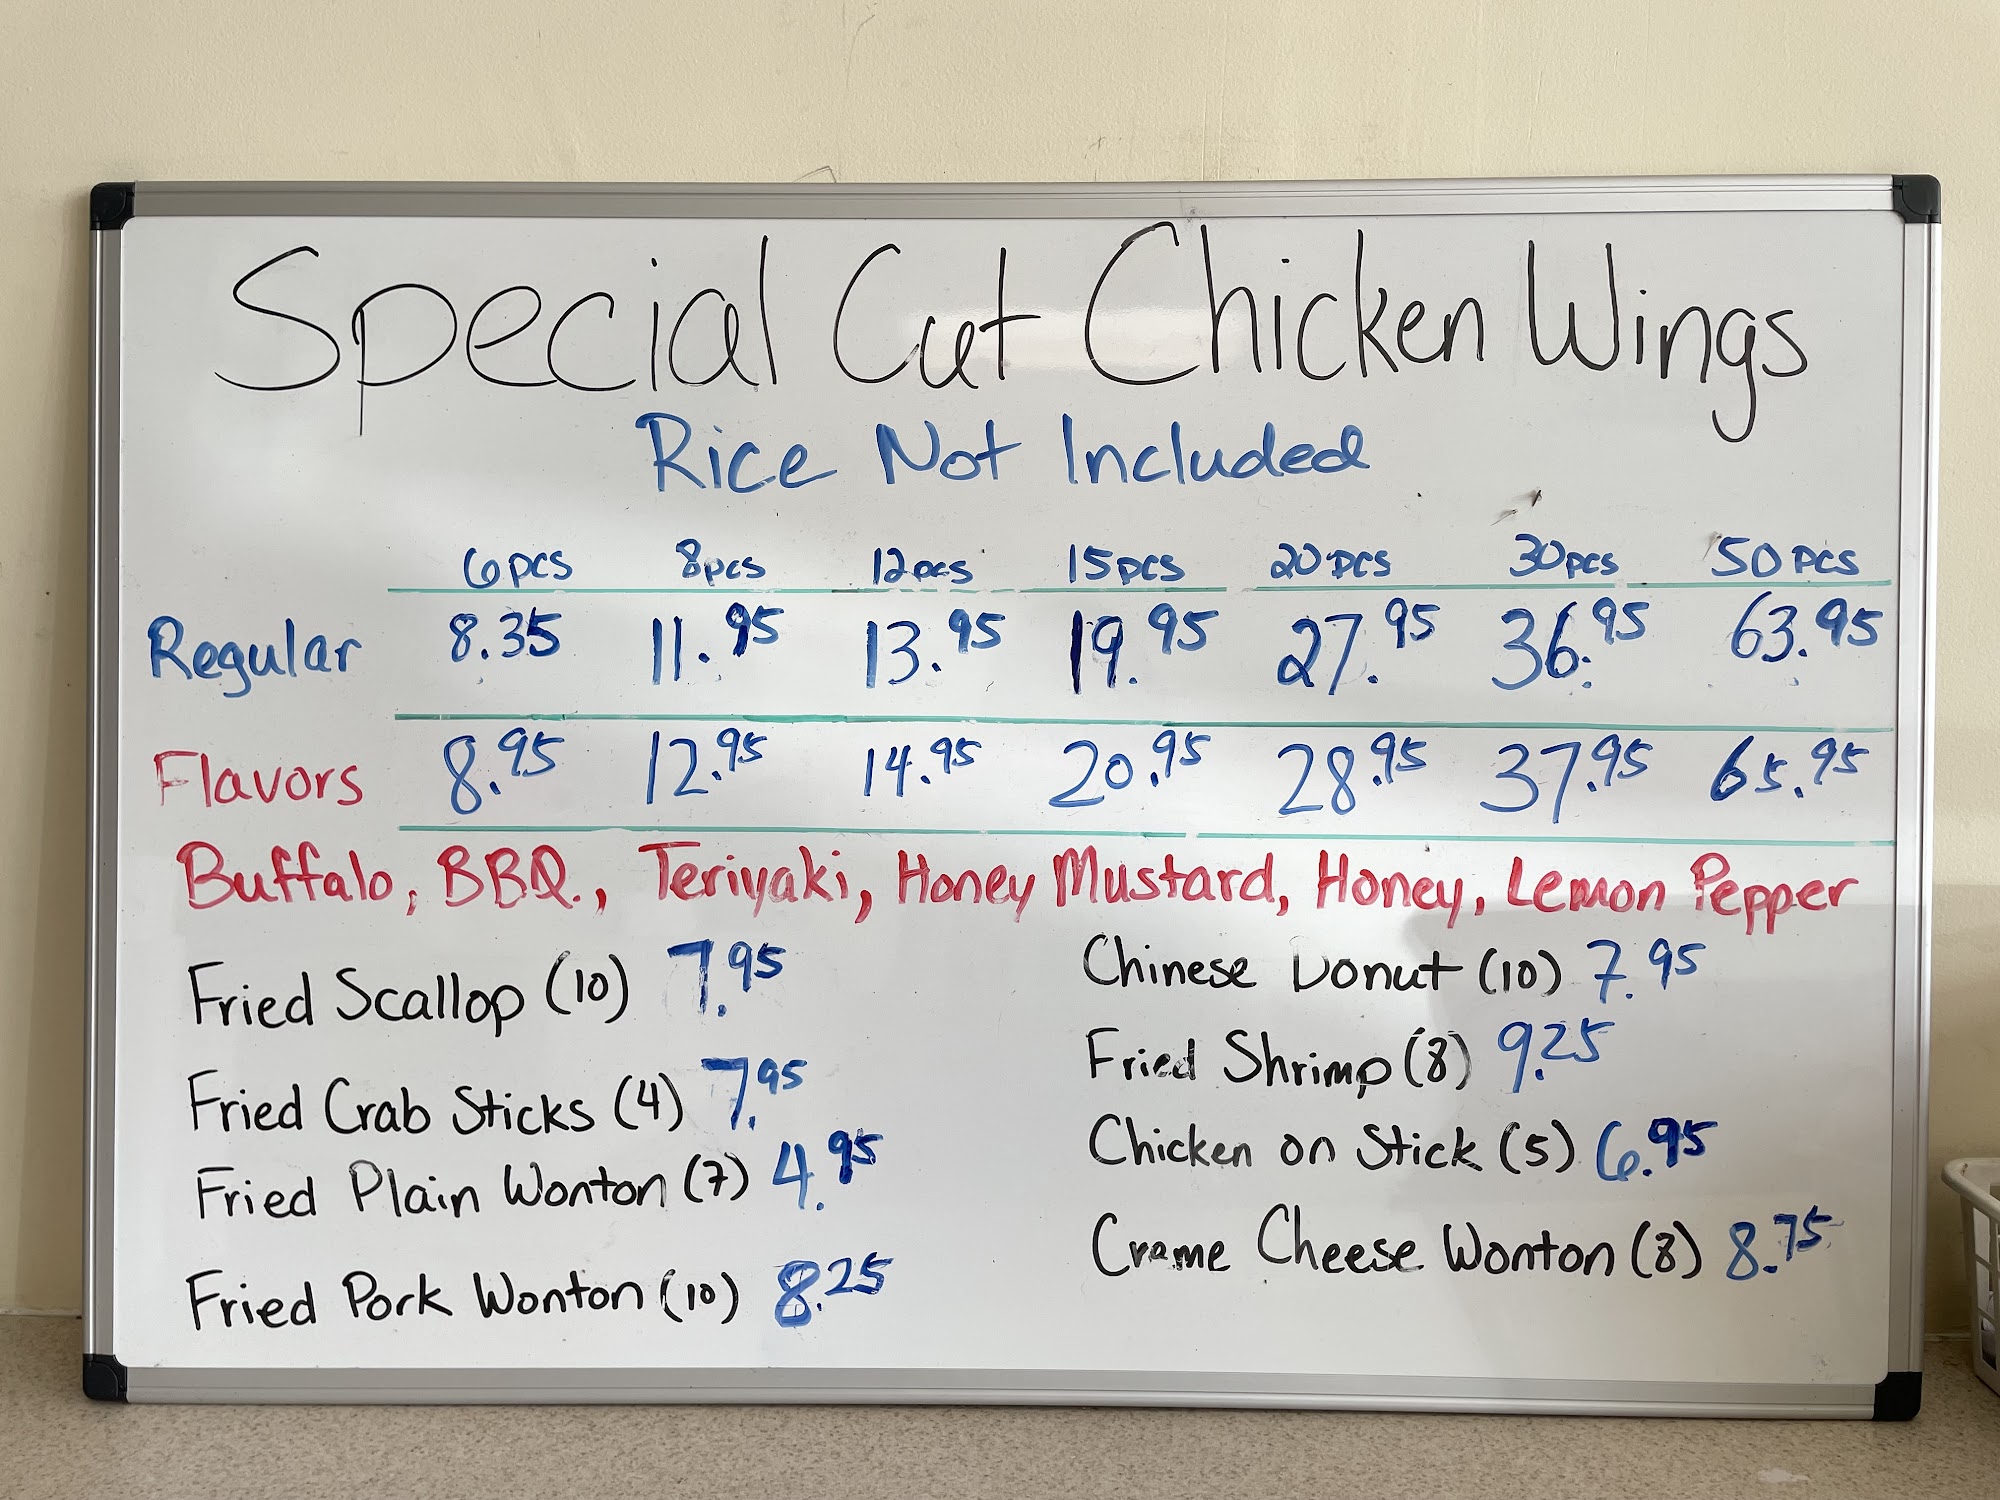 Special Cut Chicken Wings
Rice Not Included
6pcs 8pcs 12pcs 15pcs 20pcs 30pcs 50pcs
Regular 8.35 11.95 13.95 19.95 27.95 36.95 63.95
Flavors 8.95 12.95 14.95 20.95 28.95 37.95 65.95
Buffalo, BBQ., Teriyaki, Honey Mustard, Honey, Lemon Pepper
Fried Scallop (10) 7.95
Fried Crab Sticks (4) 7.95
Fried Plain Wonton (7) 4.95
Fried Pork Wonton (10) 8.25
Chinese Donut (10) 7.95
Fried Shrimp (8) 9.25
Chicken on Stick (5) 6.95
Crame Cheese Wonton (8) 8.75